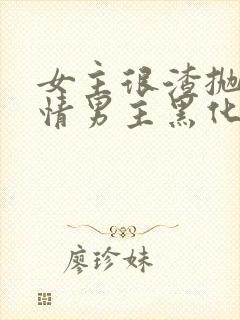 女主很渣抛
情男主黑化
廖珍妹